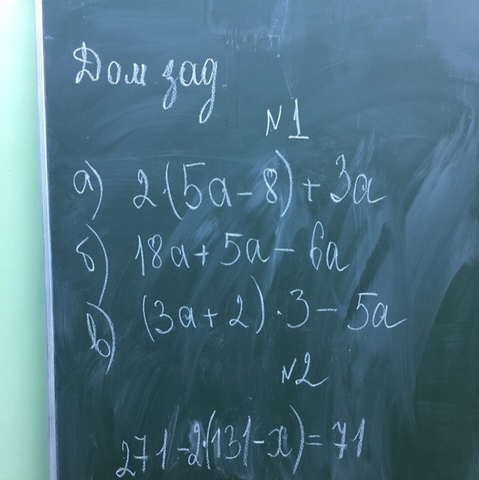 Дом зад
N1
а) 2·(5a-8)+3a
б) 18a+5a-6a
в) (3a+2)·3-5a
N2
271-2·(131-x)=71